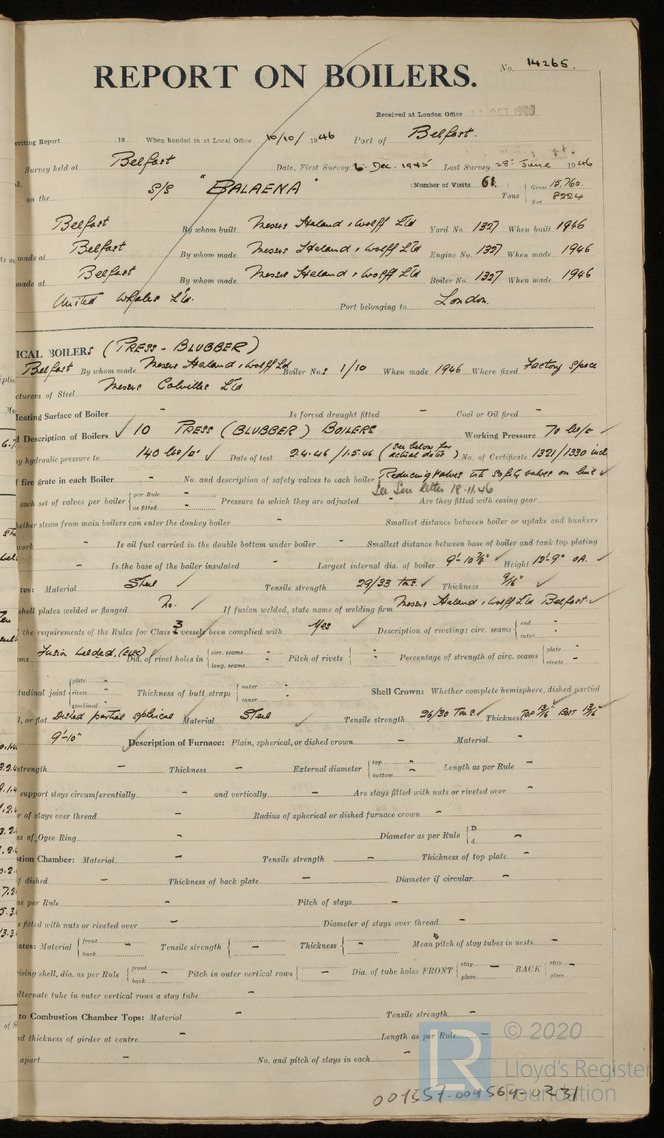 REPORT ON BOILERS.
No. 14265.
Received at London Office OCT 1946
writing Report 19 When handed in at Local Office 10/10/ 1946 Port of Belfast.
Survey held at Belfast Date, First Survey 6 Dec. 1945 Last Survey 28th June 1946
on the S/S "BALAENA" (Number of Visits 61 Tons Gross 15,760. Net 8224
Belfast By whom built Messrs Harland & Wolff Ltd Yard No. 1327 When built 1946
made at Belfast By whom made Messrs Harland & Wolff Ltd Engine No. 1327 When made 1946
made at Belfast By whom made Messrs Harland & Wolff Ltd Boiler No. 1327 When made 1946
United Whalers Ltd. Port belonging to London.
ICAL BOILERS (PRESS - BLUBBER)
Belfast By whom made Messrs Harland & Wolff Ltd Boiler No.s 1/10 When made 1946 Where fixed Factory space
cturers of Steel Messrs Colvilles Ltd
Heating Surface of Boiler - Is forced draught fitted - Coal or Oil fired -
d Description of Boilers 10 PRESS (BLUBBER) BOILERS Working Pressure 70 lbs/□"
y hydraulic pressure to 140 lbs/□" Date of test 2.4.46 /1.5.46 (see below for actual dates) No. of Certificate 1321/1330 incl
f fire grate in each Boiler - No. and description of safety valves to each boiler Reducing valves with safety valves on line
See letter 18.11.46
each set of valves per boiler per Rule - or fitted - Pressure to which they are adjusted Are they fitted with easing gear
hether steam from main boilers can enter the donkey boiler - Smallest distance between boiler or uptake and bunkers
work - Is oil fuel carried in the double bottom under boiler - Smallest distance between base of boiler and tank top plating
- Is the base of the boiler insulated - Largest internal dia. of boiler 9'-10⅞" Height 12'-9" OA.
tes: Material Steel Tensile strength 29/33 tons. Thickness 9/16"
shell plates welded or flanged No. If fusion welded, state name of welding firm Messrs Harland & Wolff Ltd Belfast
the requirements of the Rules for Class 3 vessels been complied with Yes Description of riveting: circ. seams end - inter. -
ms Fusion welded. Dia. of rivet holes in circ. seams - long. seams - Pitch of rivets - Percentage of strength of circ. seams plate - rivets -
tudinal joint plate - rivets - combined - Thickness of butt straps outer - inner - Shell Crown: Whether complete hemisphere, dished partial
l, or flat Dished partial spherical Material Steel Tensile strength 26/30 Tons. Thickness
9'-10" Description of Furnace: Plain, spherical, or dished crown - Material -
strength - Thickness - External diameter top - bottom - Length as per Rule -
support stays circumferentially - and vertically - Are stays fitted with nuts or riveted over -
r of stays over thread - Radius of spherical or dished furnace crown -
ss of Ogee Ring - Diameter as per Rule D - d -
stion Chamber: Material - Tensile strength - Thickness of top plate -
f dished - Thickness of back plate - Diameter if circular -
as per Rule - Pitch of stays -
s fitted with nuts or riveted over - Diameter of stays over thread -
ates: Material front - back Tensile strength - Thickness - Mean pitch of stay tubes in nests -
rising shell, dia. as per Rule front - back Pitch in outer vertical rows - Dia. of tube holes FRONT stay - plain BACK stay - plain
alternate tube in outer vertical rows a stay tube -
to Combustion Chamber Tops: Material - Tensile strength -
nd thickness of girder at centre - Length as per Rule -
apart - No. and pitch of stays in each -
© 2020
LR Lloyd's Register
Foundation
001557-001564-0231